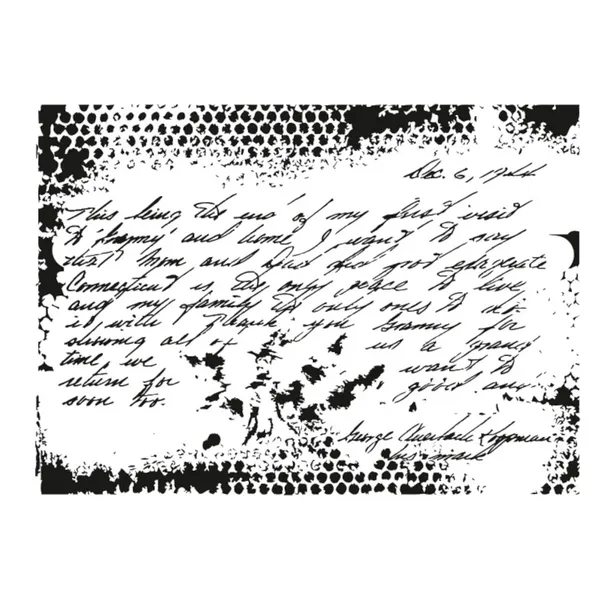 Dec. 6, 1944
This being the end of my first visit
to 'Grammy' and home I want to say
that Mom and Dad are good
Connecticut is the only place to live,
and my family the only ones to do
it with Thank you Grammy for
showing all of us a grand
time, we want to
return for good and
soon too.
George Auerbach
his mark